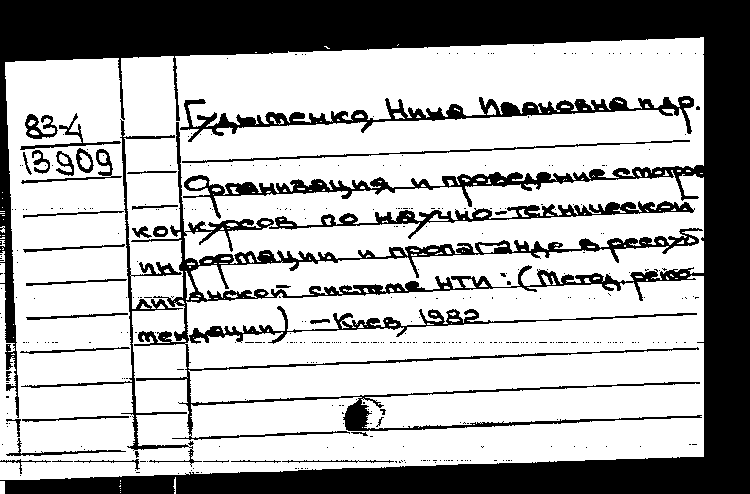 83-4
13909
Гудыменко, Нина Ивановна и др.
Организация и проведение смотров
конкурсов по научно-технической
информации и пропаганде в респуб-
ликанской системе НТИ : (Метод. реко-
мендации) - Киев, 1982